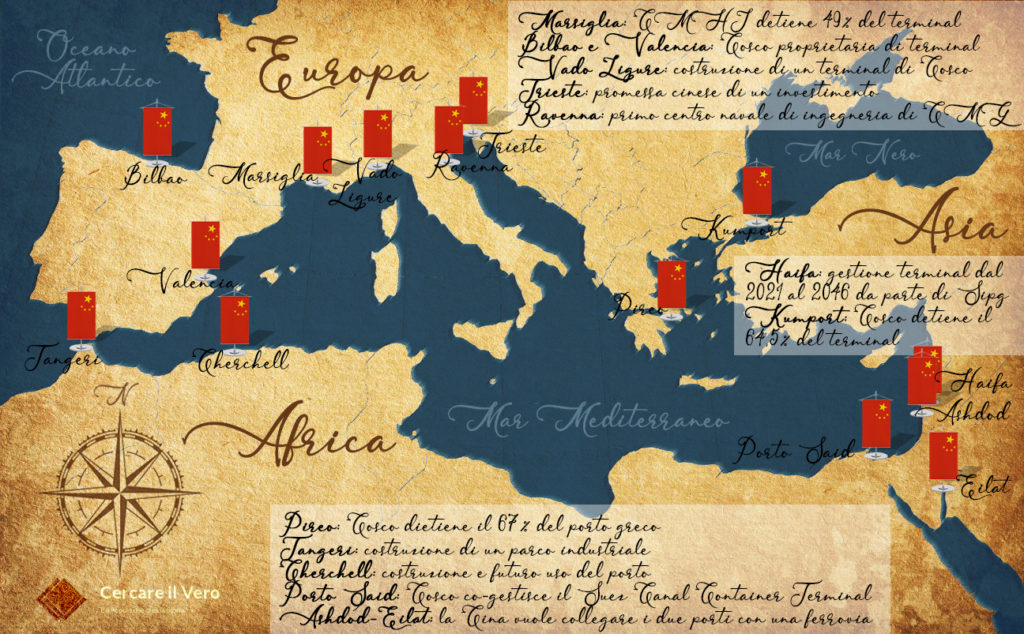 Marsiglia: CMHI detiene 49% del terminal
Bilbao e Valencia: Cosco proprietaria di terminal
Vado Ligure: costruzione di un terminal di Cosco
Trieste: promessa cinese di un investimento
Ravenna: primo centro navale di ingegneria di CMG
Oceano
Atlantico
Europa
Mar Nero
Asia
Bilbao
Marsiglia
Vado
Ligure
Ravenna
Trieste
Kumport
Valencia
Pireo
Tangeri
Cherchell
Haifa: gestione terminal dal
2021 al 2046 da parte di Sipg
Kumport: Cosco detiene il
64,5% del terminal
Haifa
Ashdod
Porto Said
Eilat
N
Africa
Mar Mediterraneo
Pireo: Cosco dietiene il 67% del porto greco
Tangeri: costruzione di un parco industriale
Cherchell: costruzione e futuro uso del porto
Porto Said: Cosco co-gestisce il Suez Canal Container Terminal
Ashdod-Eilat: la Cina vuole collegare i due porti con una ferrovia
Cercare il Vero